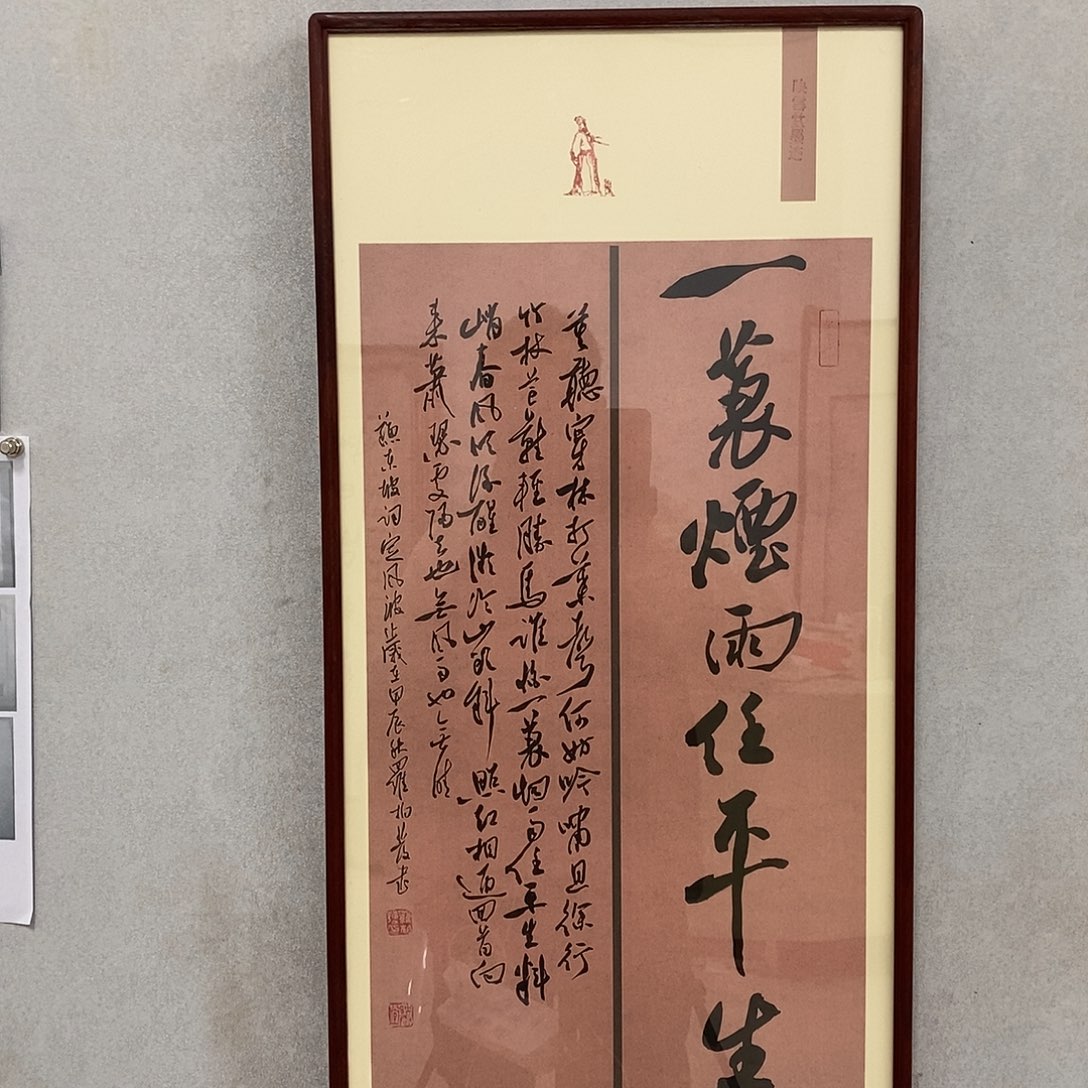 一蓑煙雨任平生
莫聽穿林打葉聲何妨吟嘯且徐行
竹杖芒鞋輕勝馬誰怕一蓑烟雨任平生料
峭春風吹酒醒微冷山頭斜照却相迎回首向
來蕭瑟處歸去也無風雨也無晴
蘇東坡詞定風波歲在甲辰秋羅柏發書